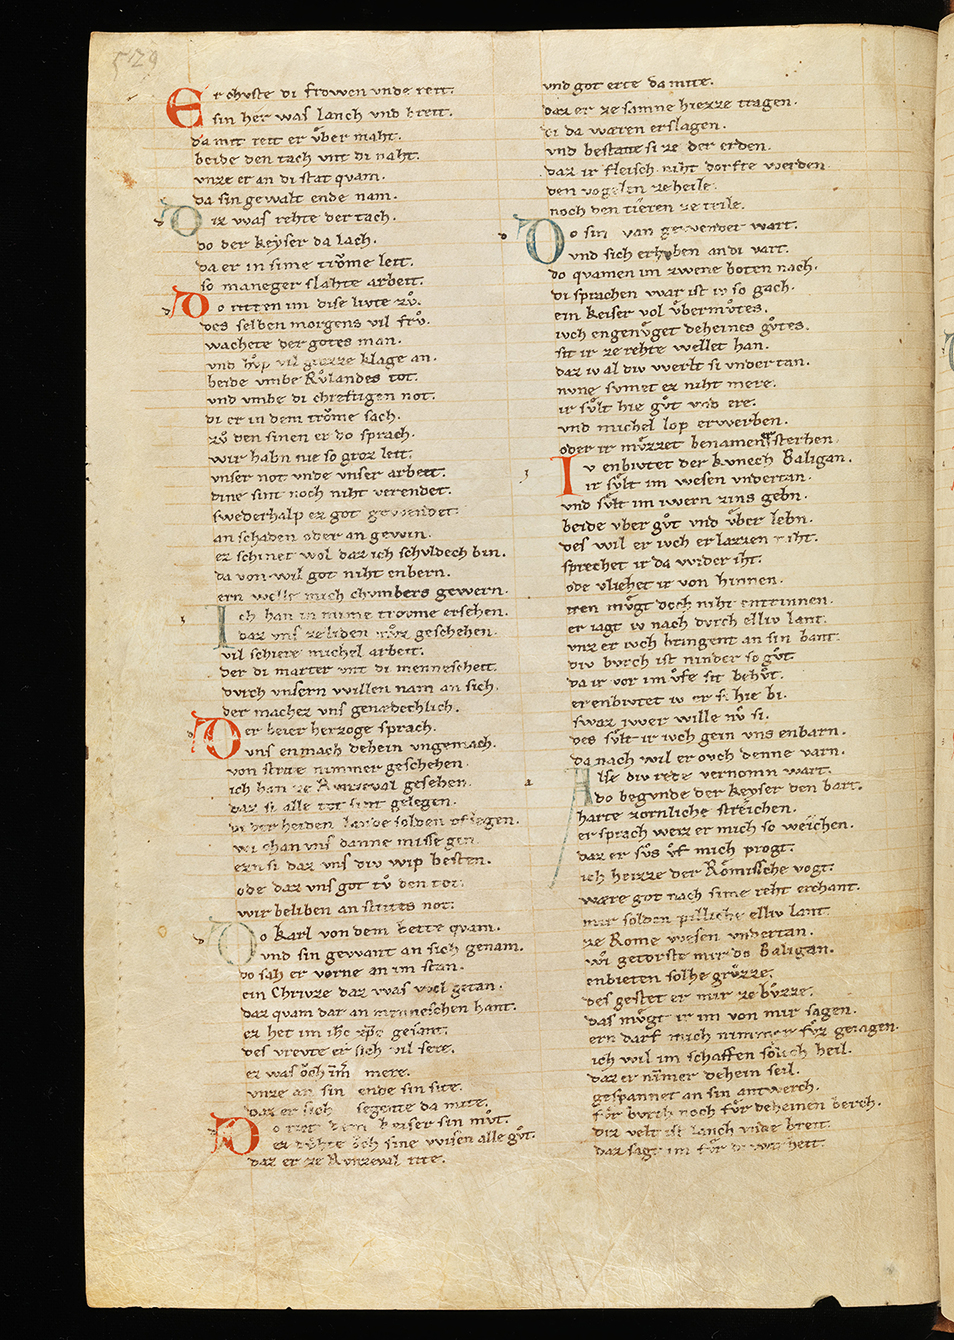 529
Er chuste di frowen unde reit.
sin her was lanch und breit.
da mit reit er uͦber maht.
beide den tach unt di naht.
unze er an di stat quam.
da sin gewalt ende nam.
Diz was rehte der tach.
do der keyser da lach.
da er in sime troͮme leit.
so maneger slahte arbeit.
Do ritten im dise livte zuͦ.
des selben morgens vil fruͦ.
wachete der gotes man.
und huͦp vil grozze klage an.
beide umbe Ruͦlandes tot.
und umbe di christigen not.
di er in dem troͮme sach.
zuͦ den sinen er do sprach.
wir habn nie so groz leit.
unser not unde unser arbeit.
dine sint noch niht verendet.
swederhalp ez got gewendet.
an schaden oder an gewin.
ez schinet wol daz ich schuldech bin.
da von wil got niht enbern.
ern welle mich chumbers gewern.
Ich han in mime troume ersehen.
daz uns ze liden muͦz geschehen.
vil schiere michel arbeit.
der di marter unt di mennescheit.
durch unsern willen nam an sich.
der machez uns genædechlich.
Der beier herzoge sprach.
uns enmach dehein ungemach.
von strite nimmer geschehen.
ich han ze Runzeval gesehen.
daz si alle tot sint gelegen.
di der heiden lande solden pflegen.
wi chan uns danne misse gen
ezn si daz uns div wip besten.
ode daz uns got tuͦ den tot.
wir beliben an strites not.
Do Karl von dem bette quam.
und sin gewant an sich genam.
do sah er vorne an im stan.
ein Chriuze daz was wol getan.
daz quam dar an menneschen hant.
ez het im ihc xpc gesant.
des vrevte er sich vil sere.
ez was oͮch im mere.
unze an sin ende sin site.
daz er sich segente da mite.
Do riet dem keiser sin muͦt.
ez duhte oͮch sine wisen alle guͦt.
daz er ze Runzeval rite.
und got erte da mite.
daz er ze samne hiezze tragen.
di da wæren erslagen.
und bestatte si ze der erden.
daz ir fleisch niht dorfte werden.
den vogelen ze heile.
noch den tieren ze teile.
Do sin van gewendet wart.
und sich erhoben an di vart.
do quamen im zwene boten nach.
di sprachen war ist iv so gach.
ein keiser vol uͦbermuͦtes.
iuch engenuͦget deheines guͦtes.
sit ir ze rehte wellet han.
daz iv al div werlt si undertan.
nune sumet ez niht mere.
ir suͦlt hie guͦt und ere.
und michel lop erwerben.
oder ir muͦzzet benamen sterben.
Iv enbiutet der kunech Baligan.
ir suͦlt im wesen undertan.
und suͦlt im iwern zins gebn.
beide uber guͦt und uͦber lebn.
des wil er iuch erlazzen niht.
sprechet ir da wider iht.
ode vliehet ir von hinnen.
iren muͦgt doch niht entrinnen.
er iagt iv nach durch elliv lant.
unz er iuch bringent an sin bant.
div burch ist ninder so guͦt.
da ir vor im uͦfe sit behuͦt.
er enbiutet iv er si hie bi.
swaz iwer wille nuͦ si.
des suͦlt ir iuch gein uns enbarn.
da nach wil er ouch denne varn.
Alse div rede vernomn wart.
do begunde der keyser den bart.
harte zornliche streichen.
er sprach weiz er mich so weichen.
daz er suͦs uͦf mich progt.
ich heizze der Roͤmissche vogt.
wære got nach sime reht erchant.
mir solden pilliche elliv lant
ze Rome wesen undertan.
wi getorste mir do Baligan.
enbieten solhe gruͦzze.
des gestet er mir ze buͦzze.
das muͦgt ir im von mir sagen.
ern darf mich nimmer fuͦr getragen.
ich wil im schaffen soͤlich heil.
daz er nimer dehein seil.
gespannet an sin antwerch.
fuͦr burch noch fuͦr deheinen berch.
div velt ist lanch unde breit
daz sagt im fuͦr di warheit.